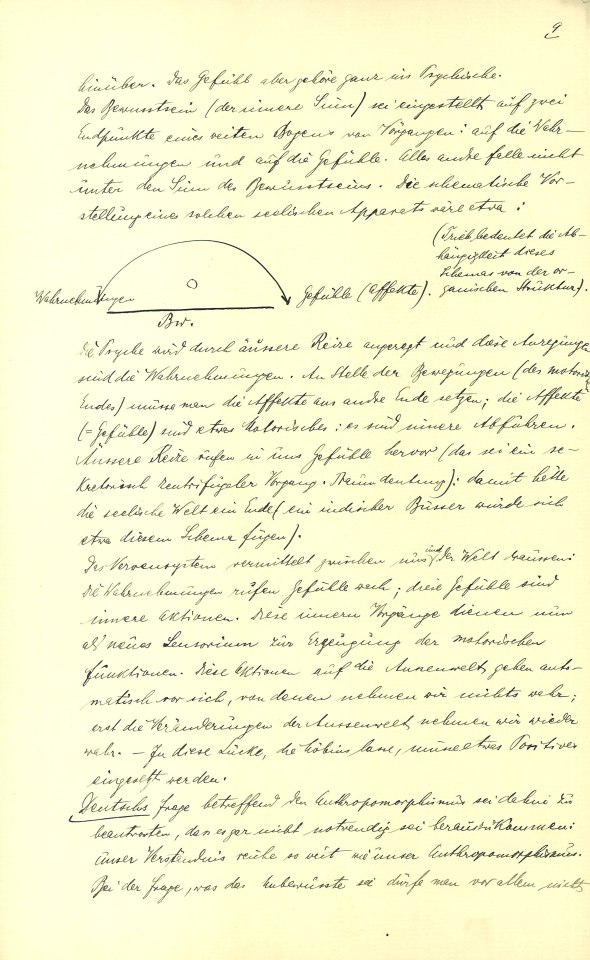 9
hinüber. Das Gefühl aber gehöre ganz ins Psychische.
Das Bewusstsein (der innere Sinn) sei eingestellt auf zwei
Endpunkte eines weiten Bogens von Vorgängen: auf die Wahr-
nehmungen und auf die Gefühle. Alles andre falle nicht
unter den Sinn des Bewusstseins. Die schematische Vor-
stellung eines solchen seelischen Apparats wäre etwa:
(Trieb bedeutet die Ab-
hängigkeit dieses
Schemas von der or-
ganischen Struktur).
Wahrnehmungen
Gefühle (Affekte).
Bw.
Die Psyche wird durch äussere Reize angeregt und diese Anregungen
sind die Wahrnehmungen. An Stelle der Bewegungen (des motorischen
Endes) müsse man die Affekte ans andre Ende setzen; die Affekte
(= Gefühle) sind etwas Motorisches: es sind innere Abfuhren.
Äussere Reize rufen in uns Gefühle hervor (das sei ein se-
kretorisch zentrifugaler Vorgang. Traumdeutung): damit hätte
die seelische Welt ein Ende (ein indischer Büsser würde sich
etwa diesem Schema fügen).
Das Nervensystem vermittelt zwischen uns und der Welt draussen:
die Wahrnehmungen rufen Gefühle wach; diese Gefühle sind
innere Aktionen. Diese innern Vorgänge dienen nun
als neues Sensorium zur Erzeugung der motorischen
Funktionen. Diese Aktionen auf die Aussenwelt gehen auto-
matisch vor sich, von denen nehmen wir nichts wahr;
erst die Veränderungen der Aussenwelt nehmen wir wieder
wahr. – In diese Lücke, die Möbius lasse, müsse etwas Positives
eingesetzt werden.
Deutschs Frage betreffend den Anthropomorphismus sei dahin zu
beantworten, dass es gar nicht notwendig sei herauszukommen:
unser Verständnis reiche so weit wie unser Anthropomorphismus.
Bei der Frage, was das Unbewusste sei dürfe man vor allem nicht